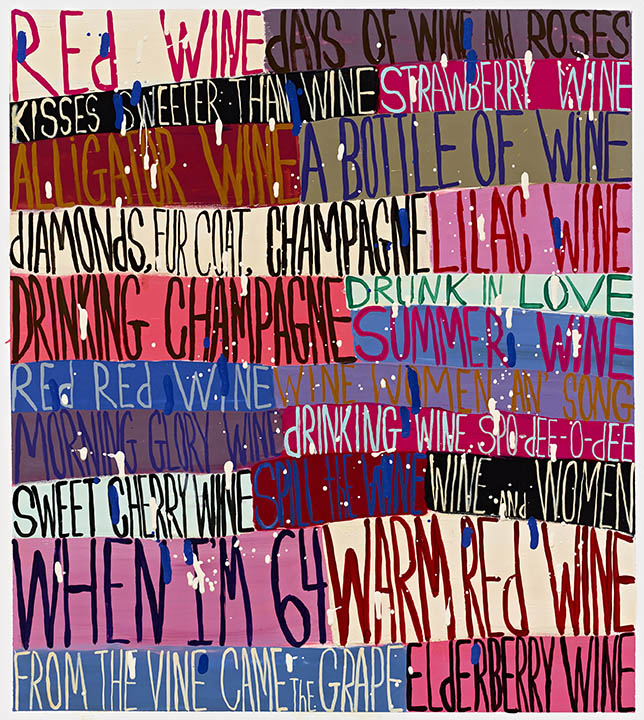 REd WINE
dAYS OF WINE ANd ROSES
KISSES SWEETER THAN WINE
STRAWBERRY WINE
ALLiGATOR WINE
A BOTTLE OF WINE
dIAMONdS, FUR COAT, CHAMPAGNE
LILAC WINE
DRINKING CHAMPAGNE
DRUNK IN LOVE
SUMMER WINE
REd REd WINE
WINE WOMEN AN' SONG
MORNING GLORY WINE
dRINKING WINE SPO-dEE-O-dEE
SWEET CHERRY WINE
SPILL tHE WINE
WINE ANd WOMEN
WHEN I'M 64
WARM REd WINE
FROM THE VINE CAME THE GRAPE
ELdERBERRY WINE